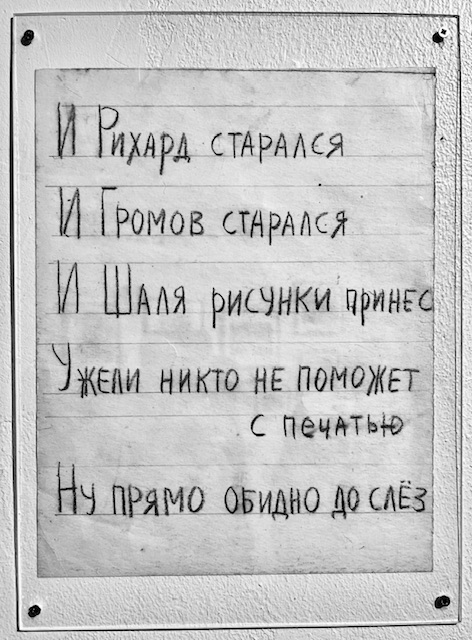 И Рихард старался
И Громов старался
И Шаля рисунки принес
Ужели никто не поможет
с печатью
Ну прямо обидно до слёз